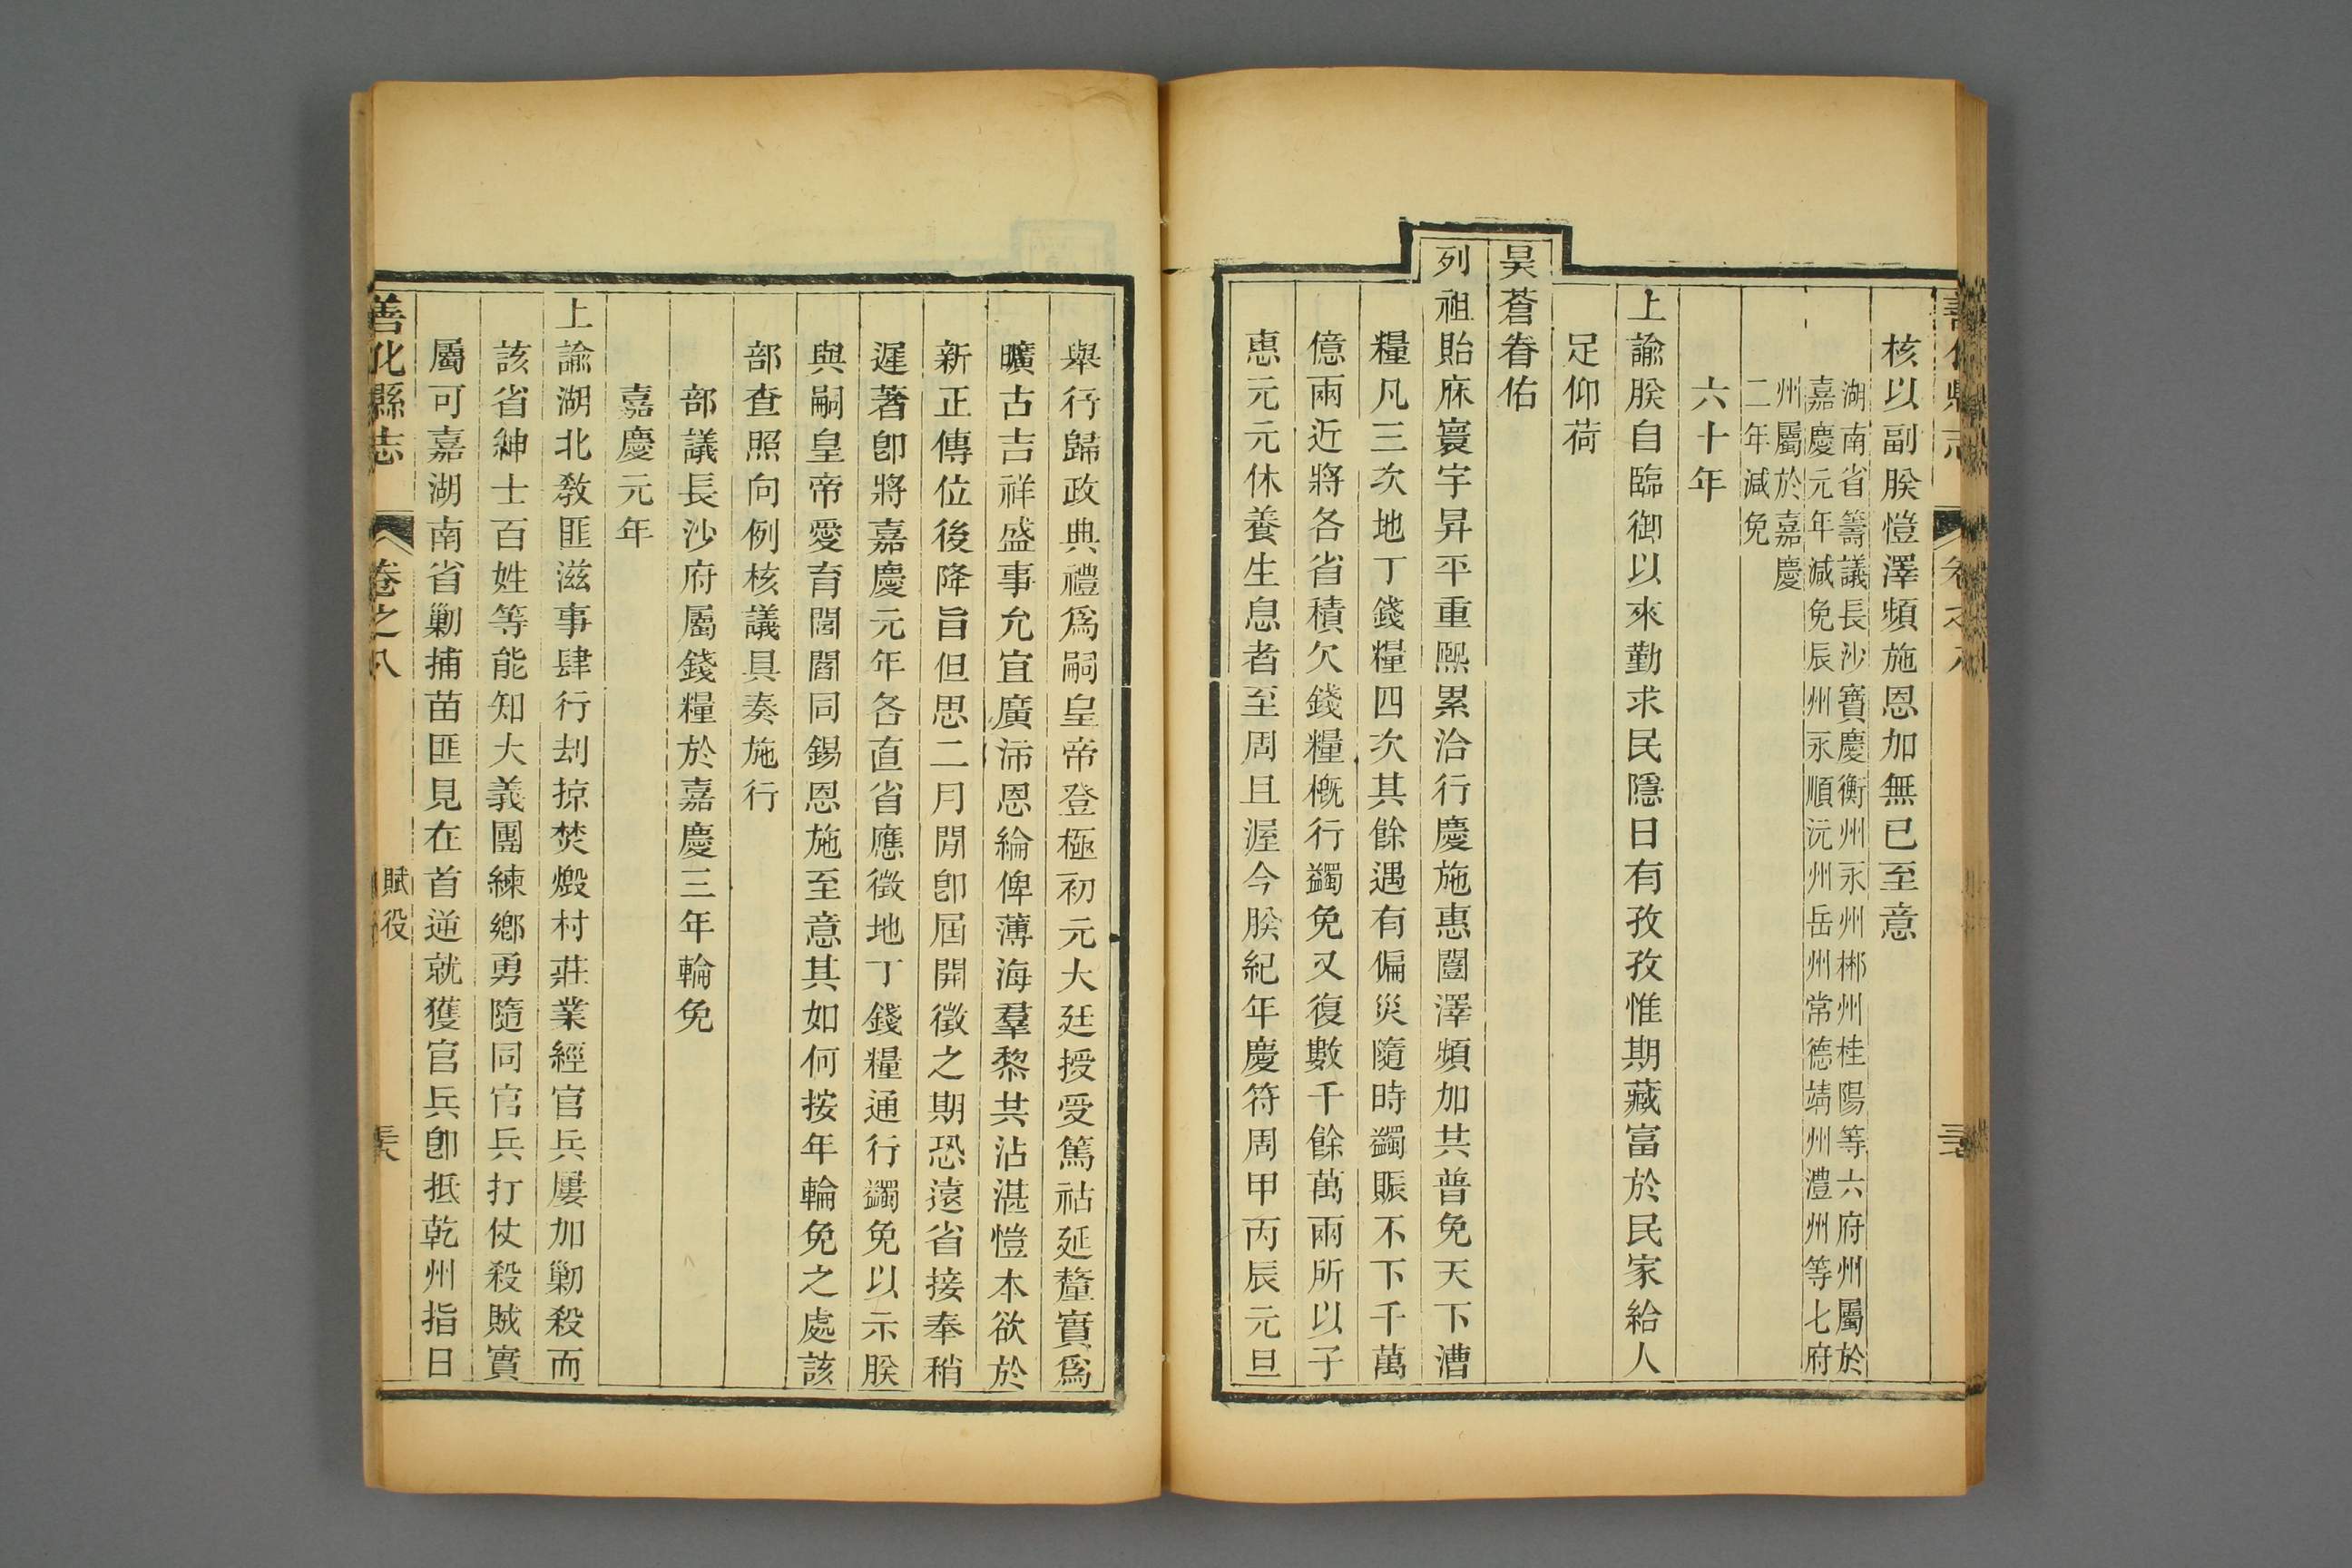 核以副朕愷澤頻施恩加無已至意
湖南省籌議長沙寶慶衡州永州郴州桂陽等六府州屬於
嘉慶元年減免辰州永順沅州岳州常德靖州澧州等七府
州屬於嘉慶
二年減免
六十年
上諭朕自臨御以來勤求民隱日有孜孜惟期藏富於民家給人
足仰荷
昊蒼眷佑
列祖貽庥寰宇昇平重熙累洽行慶施惠闓澤頻加共普免天下漕
糧凡三次地丁錢糧四次其餘遇有偏災隨時蠲賑不下千萬
億兩近將各省積欠錢糧概行蠲免又復數千餘萬兩所以子
惠元元休養生息者至周且渥今朕紀年慶符周甲丙辰元旦
舉行歸政典禮爲嗣皇帝登極初元大廷授受篤祜延釐實爲
曠古吉祥盛事允宜廣沛恩綸俾薄海羣黎共沾湛愷本欲於
新正傳位後降旨但思二月閒卽屆開徵之期恐遠省接奉稍
遲著卽將嘉慶元年各直省應徵地丁錢糧通行蠲免以示朕
與嗣皇帝愛育閭閻同錫恩施至意其如何按年輪免之處該
部查照向例核議具奏施行
部議長沙府屬錢糧於嘉慶三年輪免
嘉慶元年
上諭湖北教匪滋事肆行刦掠焚燬村莊業經官兵屢加勦殺而
該省紳士百姓等能知大義團練鄉勇隨同官兵打仗殺賊實
屬可嘉湖南省勦捕苗匪見在首逆就獲官兵卽抵乾州指日
善化縣志
卷之八
賦役